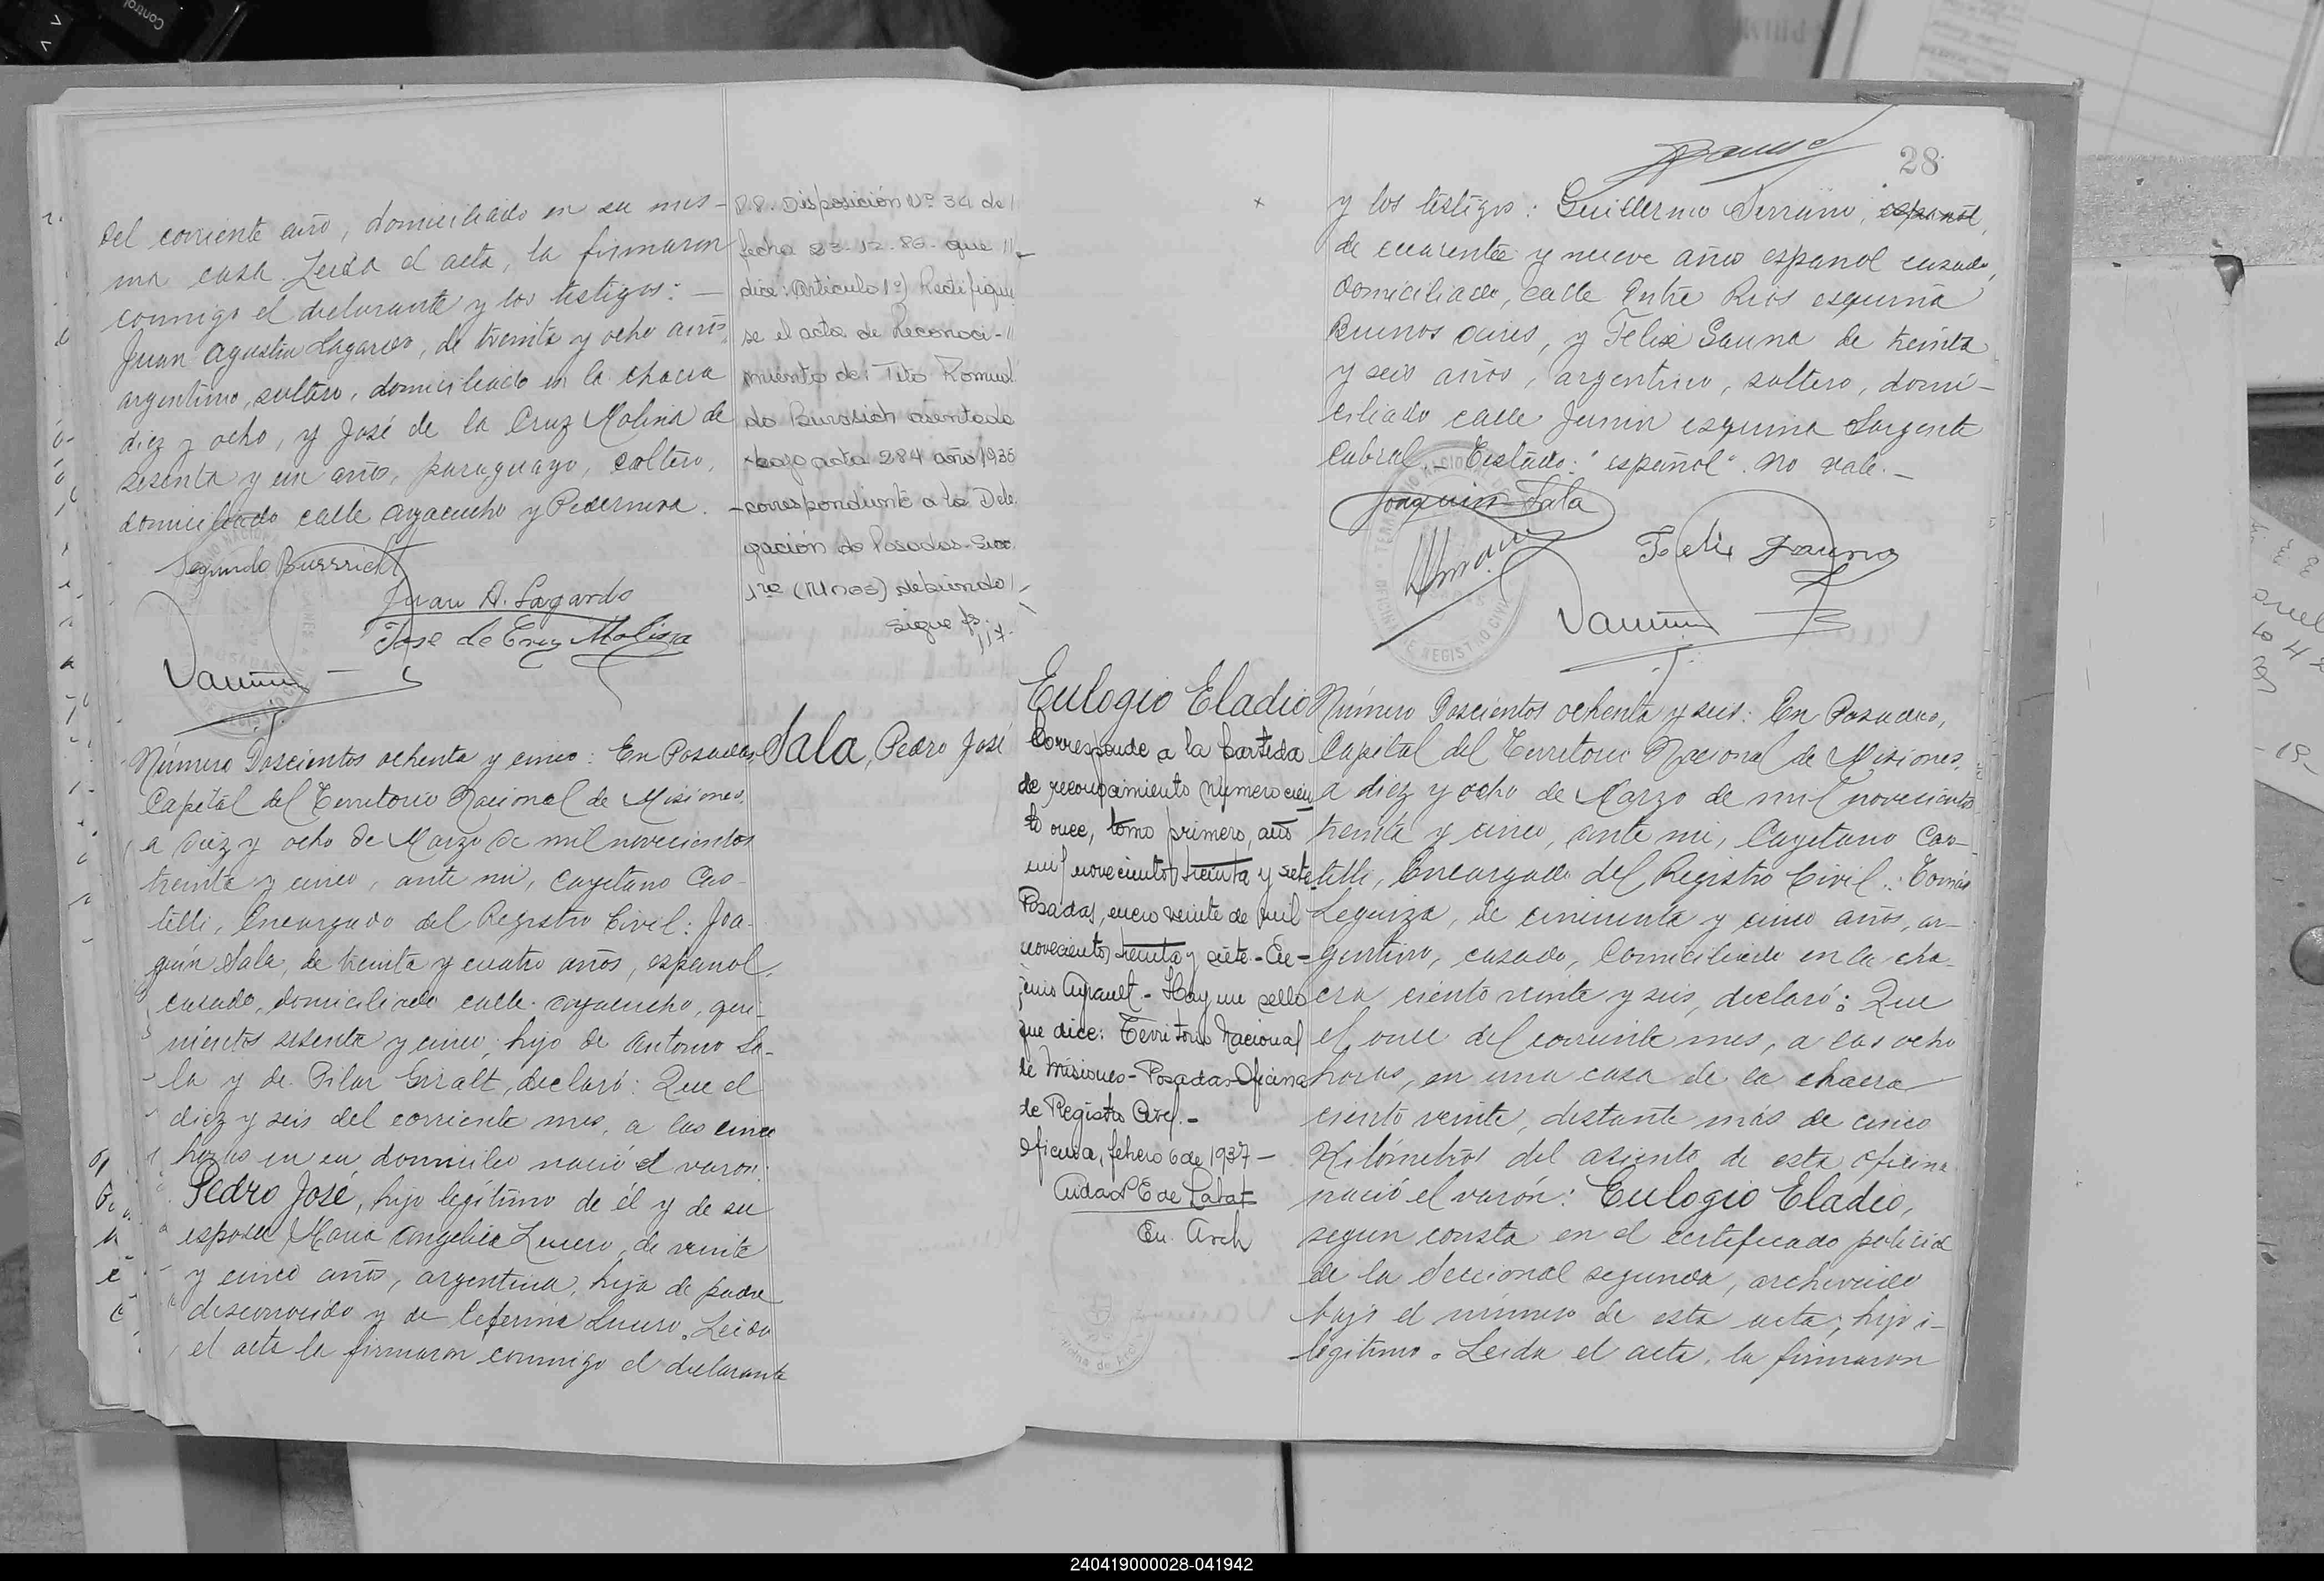 del corriente año, domiciliado en su mis-
ma casa. Leída el acta, la firmaron
conmigo el declarante y los testigos: —
Juan Agustin Lagardo, de treinta y ocho años
argentino, soltero, domiciliado en la chacra
diez y ocho, y José de la Cruz Molina de
sesenta y un años, paraguayo, soltero,
domiciliado calle Ayacucho y Pedernera.
Segundo Burrsich
Juan A. Lagardo
Jose de Cruz Molina
Número Doscientos ochenta y cinco: En Posadas,
Capital del Territorio Nacional de Misiones,
a diez y ocho de Marzo de mil novecientos
treinta y cinco, ante mi, Cayetano Cas-
telli, Encargado del Registro Civil: Joa-
quín Sala, de treinta y cuatro años, español,
casado, domiciliado calle Ayacucho, qui-
nientos sesenta y cinco, hijo de Antonio Sa-
la y de Pilar Giralt, declaró: Que el
diez y seis del corriente mes, a las cinco
horas en su domicilio nació el varon:
Pedro José, hijo legítimo de él y de su
esposa Maria Angelica Lucero, de veinte
y cinco años, argentina, hija de padre
desconocido y de Ceferina Lucero. Leida
el acta la firmaron conmigo el declarante
Disposición Nº 34 de
fecha 23-12-86- que
dice: Artículo 1º) Rectifique
se el acta de Reconoci-
miento de: Tito Romual
do Burssich asentada
bajo acta 284 año 1935
correspondiente a la Dele
gación de Posadas Secc.
1ra (Unos) debiendo
sigue
Sala, Pedro José
28
y los testigos: Guillermo Serrano, español,
de cuarenta y nueve años español casado,
domiciliado, calle Entre Rios esquina
Buenos aires, y Felix Gauna de treinta
y seis años, argentino, soltero, domi-
ciliado calle Junin esquina Sargento
Cabral.- Testado: "español". No vale.-
Joaquin Sala
Felix Gauna
Eulogio Eladio
Corresponde a la partida
de reconocimiento número cien
to once, tomo primero, año
mil novecientos treinta y siete
Posadas, enero veinte de mil
novecientos treinta y siete.-
Hay un sello
que dice: Territorio Nacional
de Misiones - Posadas - Oficina
de Registro Civil.-
Oficina, febrero 6 de 1937 —
En. Arch
Número Doscientos ochenta y seis: En Posadas,
Capital del Territorio Nacional de Misiones,
a diez y ocho de Marzo de mil novecientos
treinta y cinco, ante mi, Cayetano Cas-
telli, Encargado del Registro Civil: Tomás
Leguiza, de cincuenta y cinco años, ar-
gentino, casado, domiciliado en la cha-
cra ciento veinte y seis, declaró: Que
el once del corriente mes, a las ocho
horas, en una casa de la chacra
ciento veinte, distante más de cinco
Kilómetros del asiento de esta oficina
nació el varón: Eulogio Eladio,
segun consta en el certificado policial
de la Seccional segunda, archivado
bajo el número de esta acta; hijo i-
legitimo. Leida el acta, la firmaron
240419000028-041942